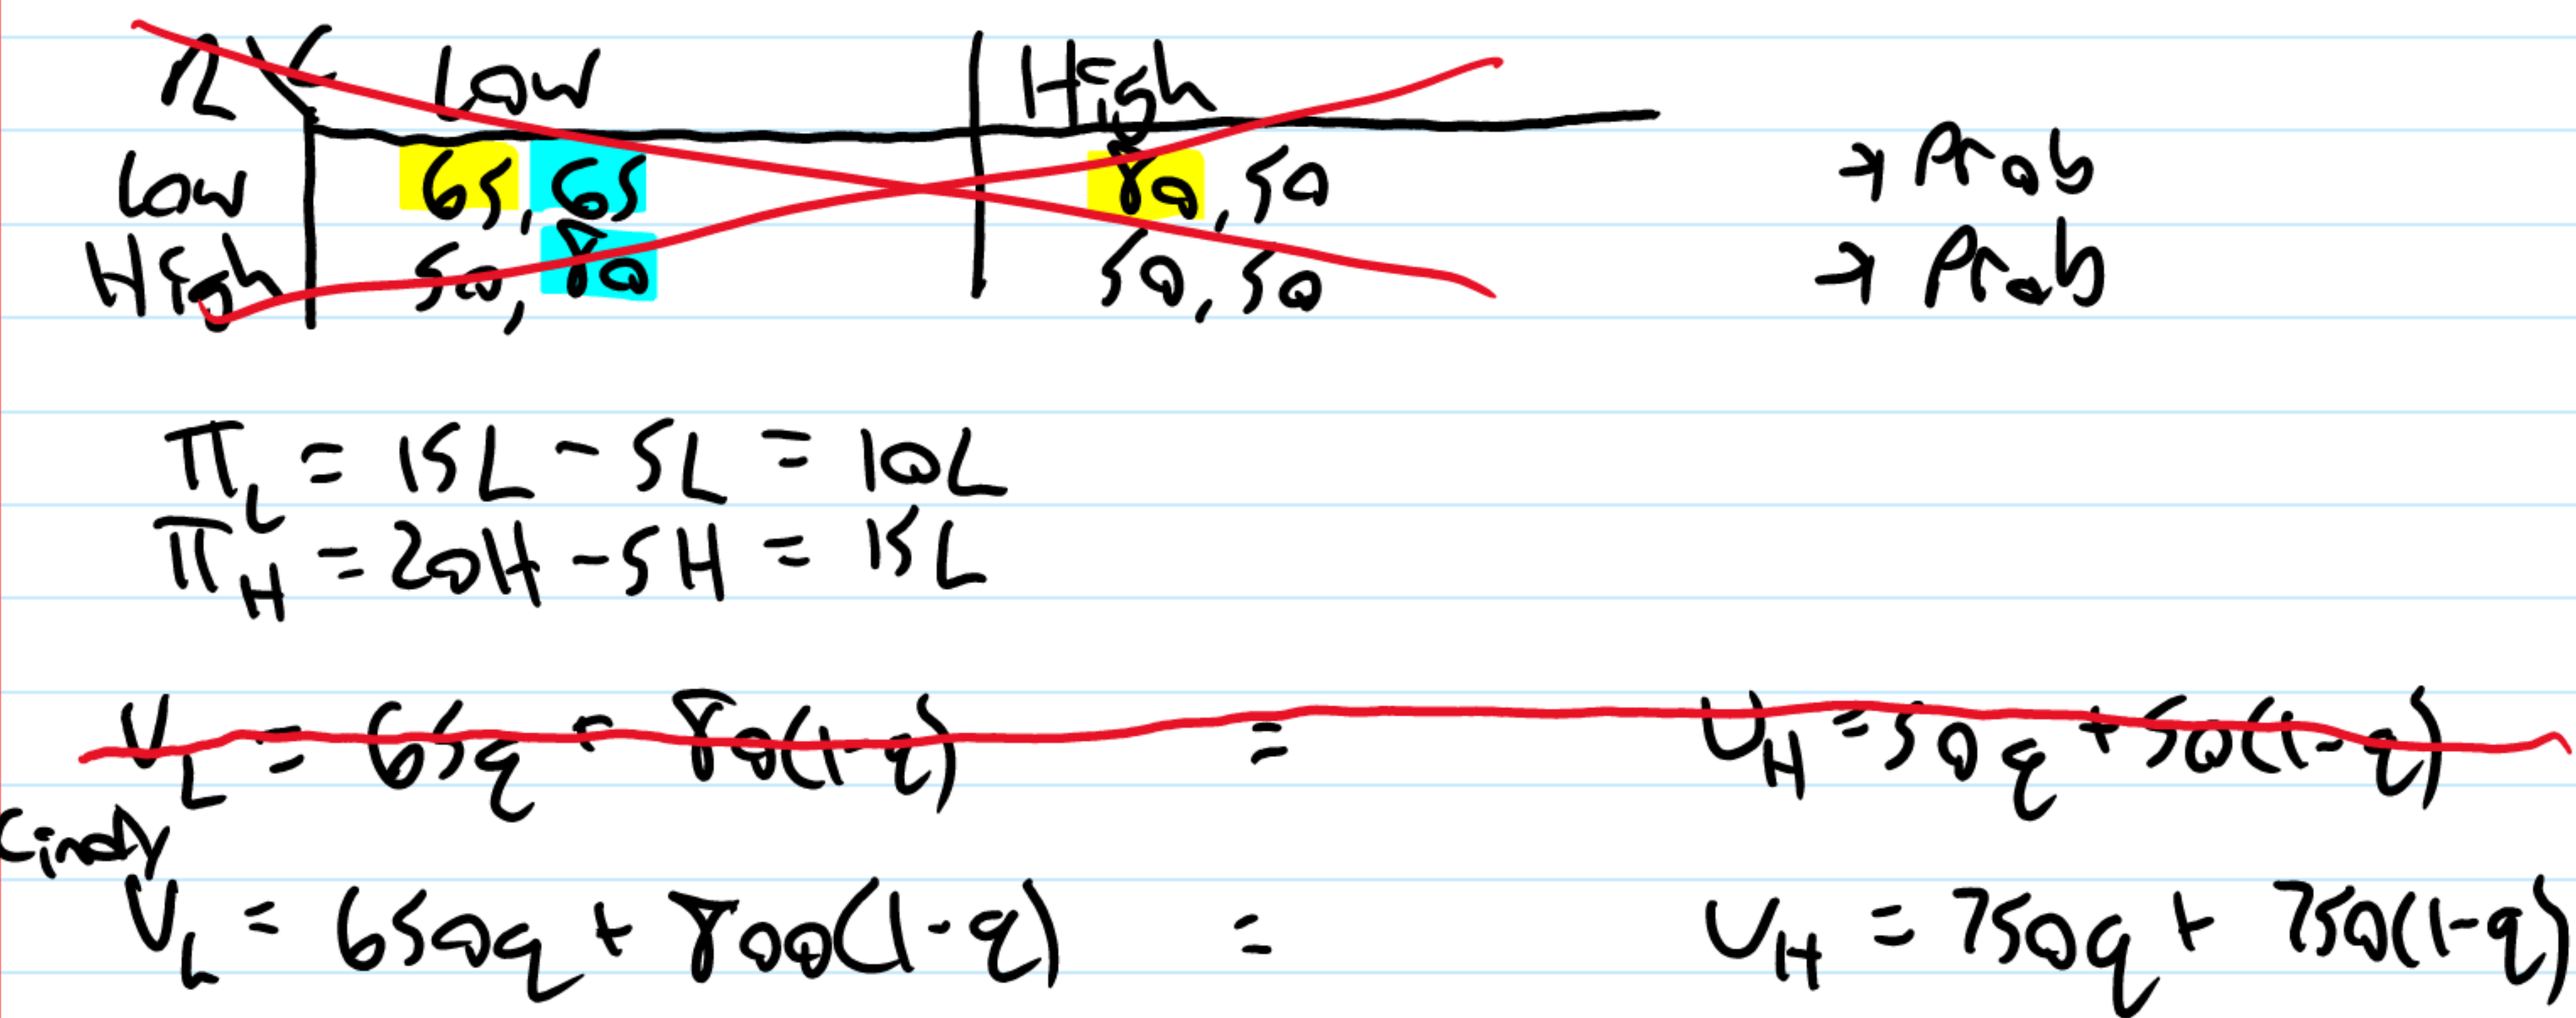 R \ C Low High
Low 65, 65 80, 50 → Prob
High 50, 80 50, 50 → Prob
π_L = 15L - 5L = 10L
π_H = 20H - 5H = 15L
U_L = 65q - 80(1-q) = U_H = 50q + 50(1-q)
Cindy
U_L = 650q + 800(1-q) = U_H = 750q + 750(1-q)